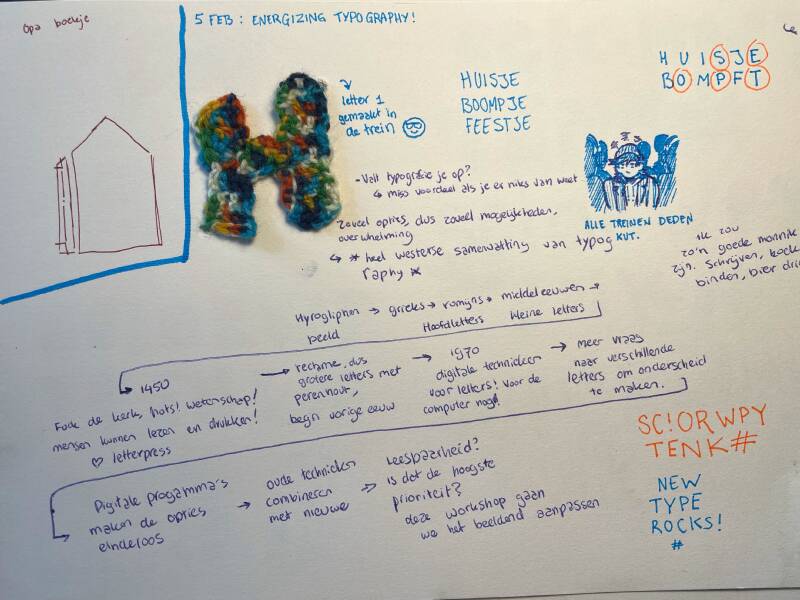 Opa boekje
5 FEB: ENERGIZING TYPOGRAPHY!
letter 1
gemaakt in
de trein
HUISJE
BOOMPJE
FEESTJE
HUISJE
BOMPFT
- Valt typografie je op?
↳ miss voordeel als je er niks van weet
Zoveel opties, dus zoveel mogelijkheden,
overwhelming
↳ * heel westerse samenvatting van typog
raphy *
ALLE TREINEN DEDEN
KUT.
Ik zou
zo'n goede monnik
zijn. Schrijven, boek
binden, bier dri
Hyrogliphen → grieks → romijns → middeleeuwen
beeld Hoofdletters kleine letters
→ 1450
Fuck de kerk, hots! Wetenschap!
mensen kunnen lezen en drukken!
♡ letterpress
→ reclame, dus
grotere letters met
perenhout,
begin vorige eeuw
→ 1970
digitale technieken
voor letters! Voor de
computer nog!
→ meer vraag
naar verschillende
letters om onderscheid
te maken.
Digitale progamma's
maken de opties
eindeloos
→ oude technieken
combineren
met nieuwe
→ Leesbaarheid?
is dat de hoogste
prioriteit?
deze workshop gaan
we het beeldend aanpassen
SC!ORWPY
TENK#
NEW
TYPE
ROCKS!
#